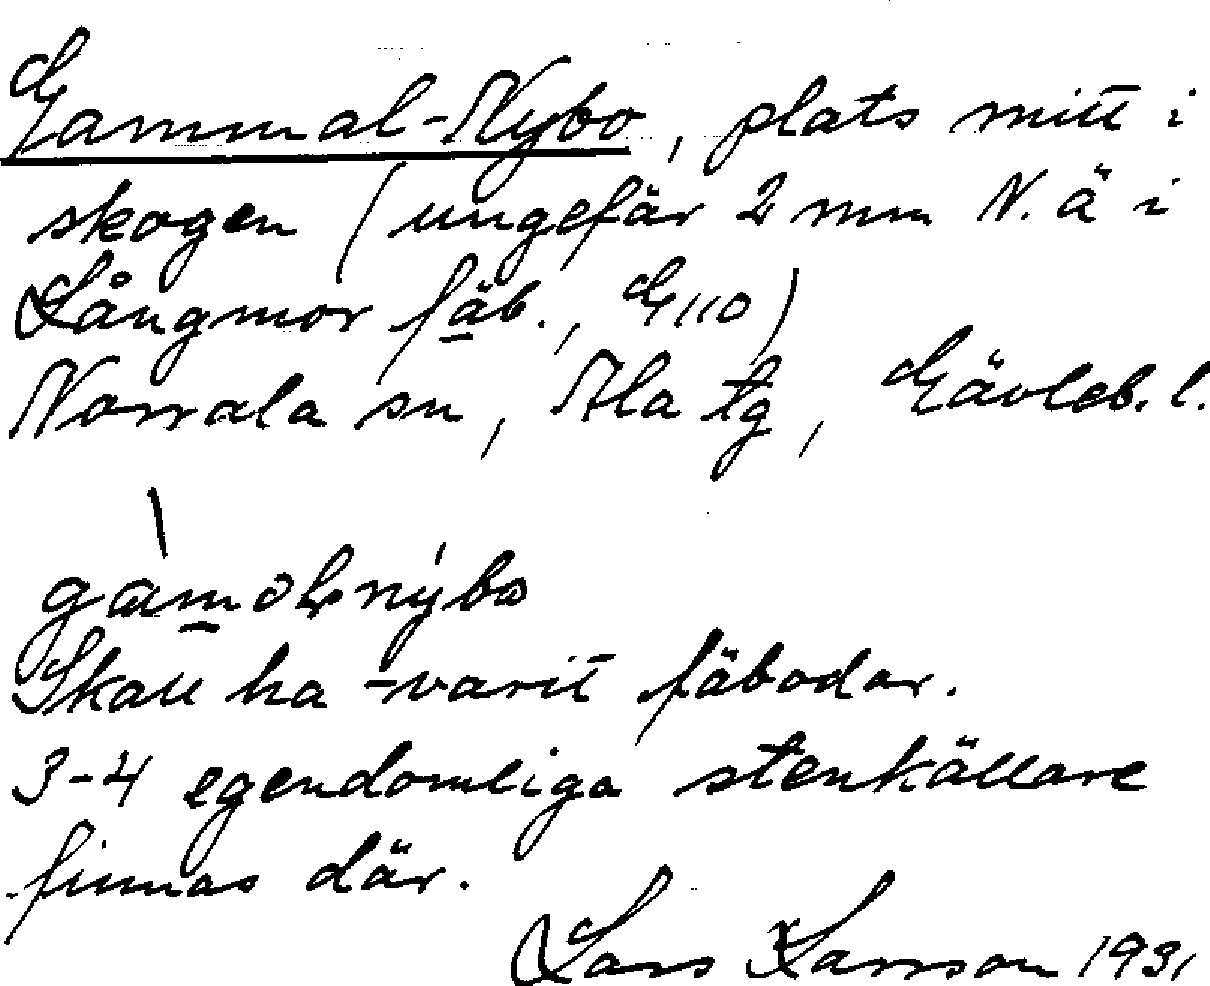 Gammal-Nybo, plats mitt i
skogen (ungefär 2 mm N. ä i
Långmor fäb., G110)
Norrala sn, Ala tg, Gävleb. l.
nýbo
Skall ha varit fäbodar.
3-4 egendomliga stenkällare
finnas där.
Lars Larsson 1931